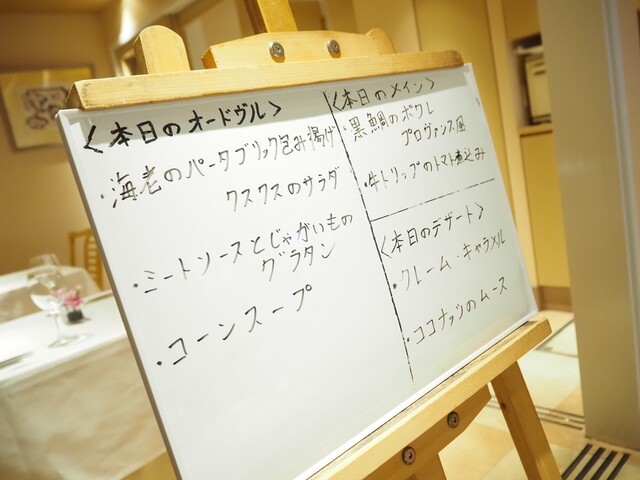 <本日のオードヴル>
・海老のパータブリック包み揚げ
クスクスのサラダ
・ミートソースとじゃがいもの
グラタン
・コーンスープ
<本日のメイン>
・黒鯛のポワレ
プロヴァンス風
・牛トリップのトマト煮込み
<本日のデザート>
・クレーム・キャラメル
・ココナッツのムース